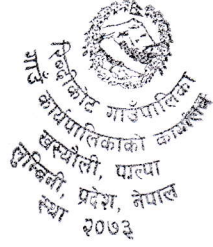 रिब्दीकोट गाउँपालिका
गाउँ कार्यपालिकाको कार्यालय
खस्यौली, पाल्पा
लुम्बिनी, प्रदेश, नेपाल
स्था
२०७३